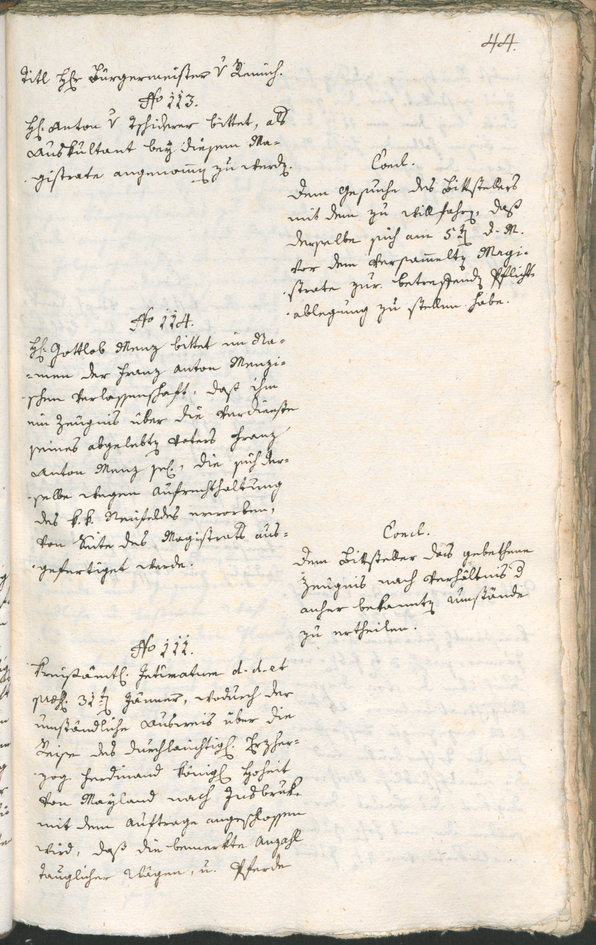 44.
Titl Hr Bürgermeister v Remich.
No 113.
H. Anton v Tschiderer bittet, als
Auskultant bey diesem Ma-
gistrate angenomen zu werdn.
Concl.
Dem Gesuche des Bittstellers
mit dem zu willfahrn, daß
derselbe sich am 5tn d. M.
vor dem versammeltn Magi-
strate zur betreffendn Pflichts
ablegung zu stellen habe.
No 114.
H. Gottlob Menz bittet im Na-
men der Franz Anton Menzi-
schen Verlassenschaft, daß ihm
ein Zeugnis über die Verdienste
seines abgelebtn Vaters Franz
Anton Menz sel., die sich der-
selbe wegen Aufrechthaltung
des k.k. Neufeldes erworben,
von Seite des Magistrats aus-
gefertiget werde.
Concl.
Dem Bittsteller das gebethene
Zeugnis nach Verhältnis d
anher bekanntn Umstände
zu ertheilen.
No 111.
Kreisämtl. Intimatum d. d. et
präs. 31tn Jänner, wodurch der
umständliche Ausweis über die
Reise des durchlauchtigst. Erzher-
zog Ferdinand königl. Hoheit
von Mayland nach Insbruk
mit dem Auftrage angeschlossen
wird, daß die bemerkte Anzahl
tauglicher Wägen, u. Pferde